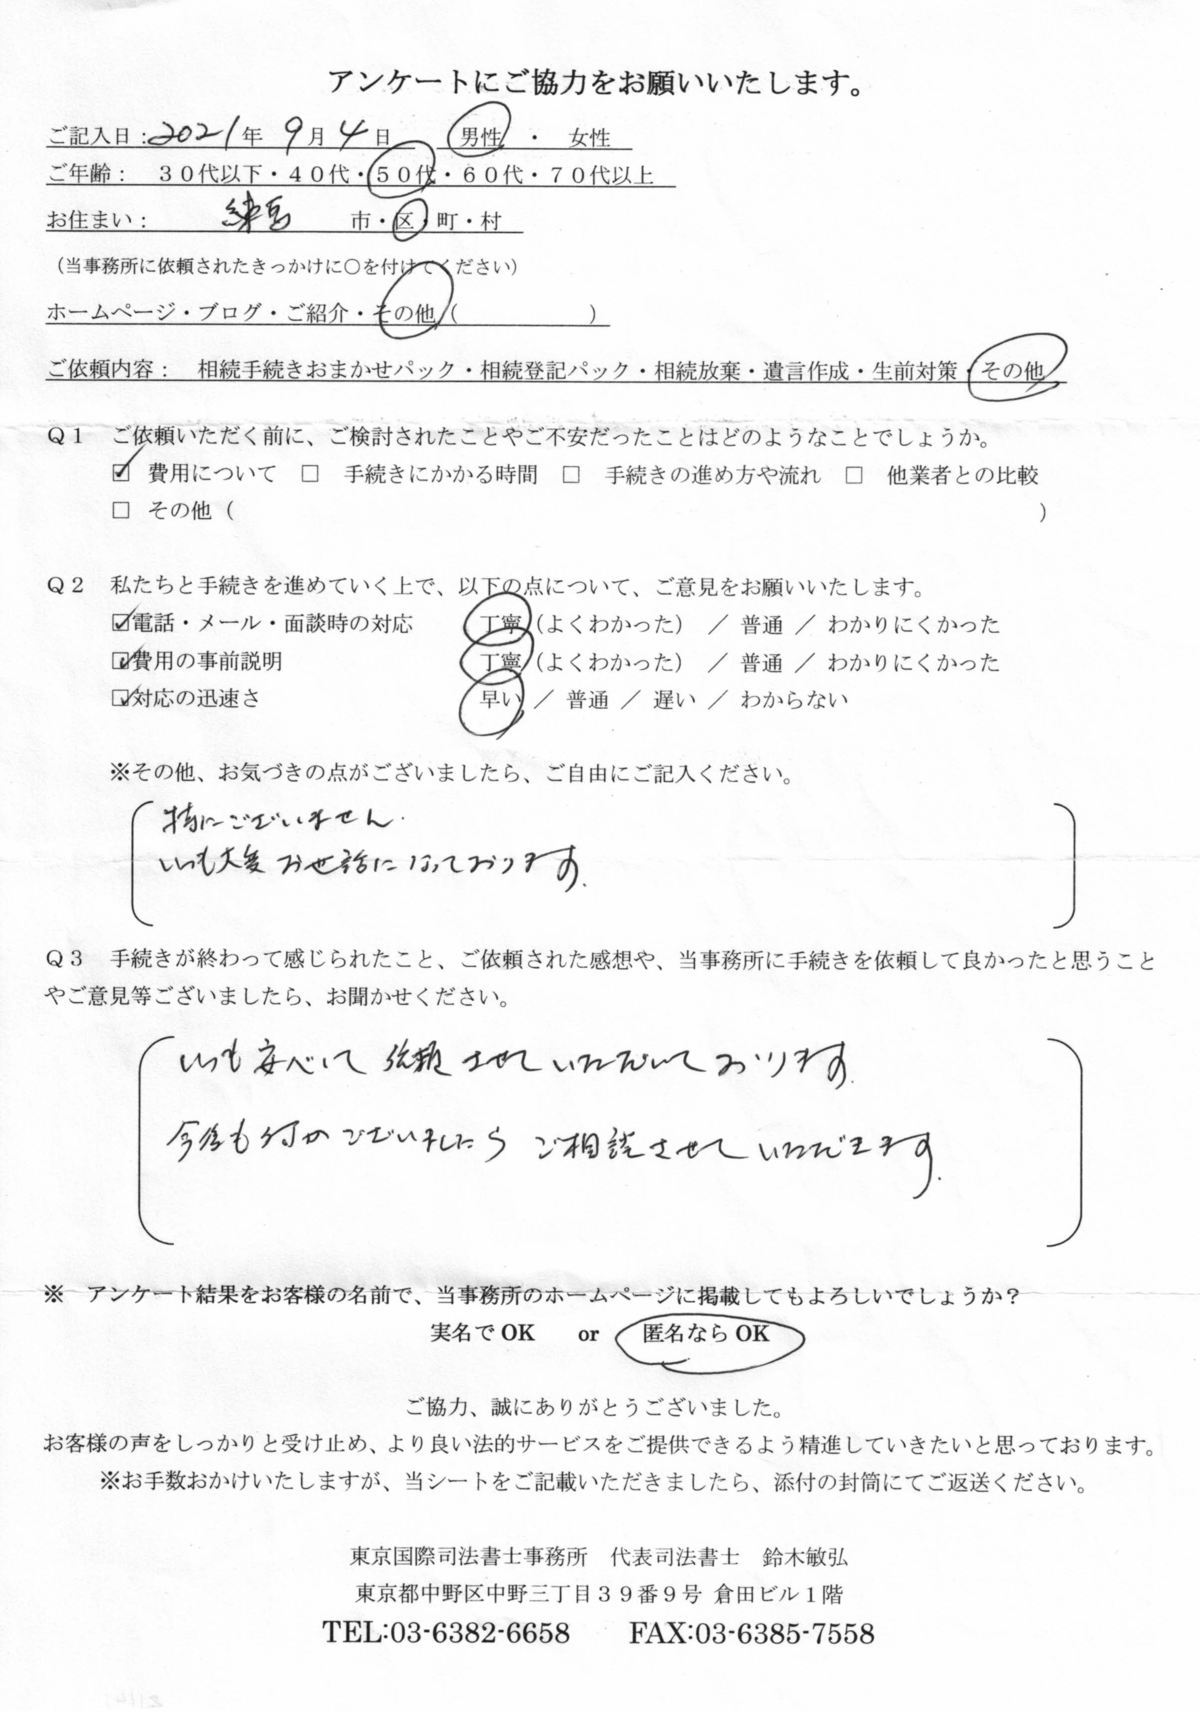 アンケートにご協力をお願いいたします。
ご記入日：2021年 9月 4日　男性 ・ 女性
ご年齢：　３０代以下・４０代・５０代・６０代・７０代以上
お住まい：　練馬　市・区・町・村
（当事務所に依頼されたきっかけに○を付けてください）
ホームページ・ブログ・ご紹介・その他（　　　　　　）
ご依頼内容：　相続手続きおまかせパック・相続登記パック・相続放棄・遺言作成・生前対策・その他
Ｑ１　ご依頼いただく前に、ご検討されたことやご不安だったことはどのようなことでしょうか。
☑ 費用について　□ 手続きにかかる時間　□ 手続きの進め方や流れ　□ 他業者との比較
□ その他（　　　　　　）
Ｑ２　私たちと手続きを進めていく上で、以下の点について、ご意見をお願いいたします。
☑電話・メール・面談時の対応　丁寧（よくわかった）／ 普通 ／ わかりにくかった
☑費用の事前説明　丁寧（よくわかった）／ 普通 ／ わかりにくかった
☑対応の迅速さ　早い ／ 普通 ／ 遅い ／ わからない
※その他、お気づきの点がございましたら、ご自由にご記入ください。
特にございません.
いつも大変お世話になっております.
Ｑ３　手続きが終わって感じられたこと、ご依頼された感想や、当事務所に手続きを依頼して良かったと思うこと
やご意見等ございましたら、お聞かせください。
いつも安心して依頼させていただいております.
今後も何かございましたらご相談させていただきます.
※　アンケート結果をお客様の名前で、当事務所のホームページに掲載してもよろしいでしょうか？
実名でOK　or　匿名ならOK
ご協力、誠にありがとうございました。
お客様の声をしっかりと受け止め、より良い法的サービスをご提供できるよう精進していきたいと思っております。
※お手数おかけいたしますが、当シートをご記載いただきましたら、添付の封筒にてご返送ください。
東京国際司法書士事務所　代表司法書士　鈴木敏弘
東京都中野区中野三丁目３９番９号 倉田ビル１階
TEL:03-6382-6658　FAX:03-6385-7558